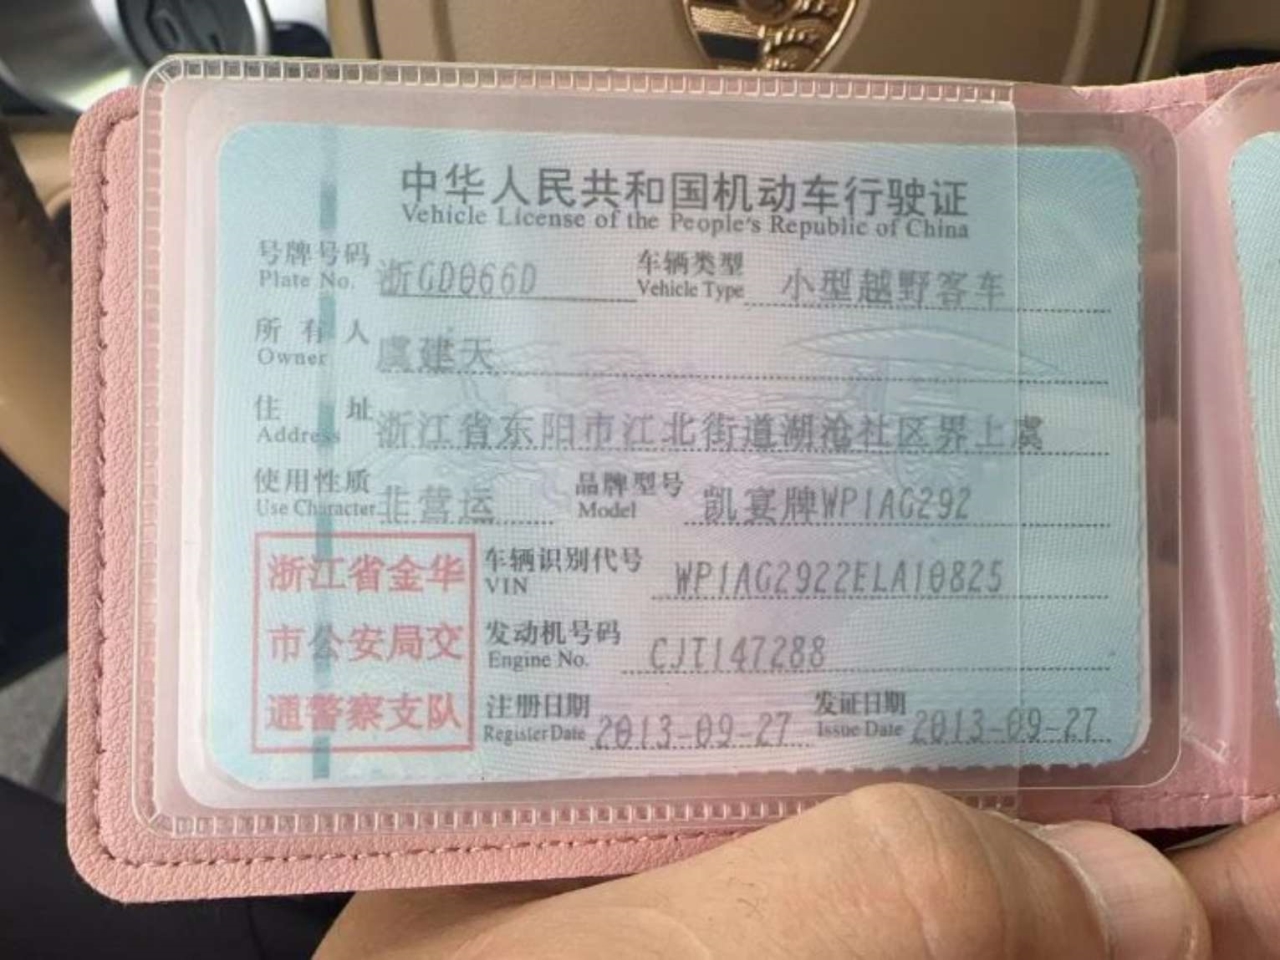 中华人民共和国机动车行驶证
Vehicle License of the People's Republic of China
号牌号码 浙GD066D 车辆类型 小型越野客车
Plate No. Vehicle Type
所有人 虞建天
Owner
住址 浙江省东阳市江北街道湖沧社区界上虞
Address
使用性质 非营运 品牌型号 凯宴牌WP1AG292
Use Character Model
浙江省金华
市公安局交
通警察支队
车辆识别代号 WP1AG2922ELA10825
VIN
发动机号码 CJT147288
Engine No.
注册日期 2013-09-27 发证日期 2013-09-27
Register Date Issue Date